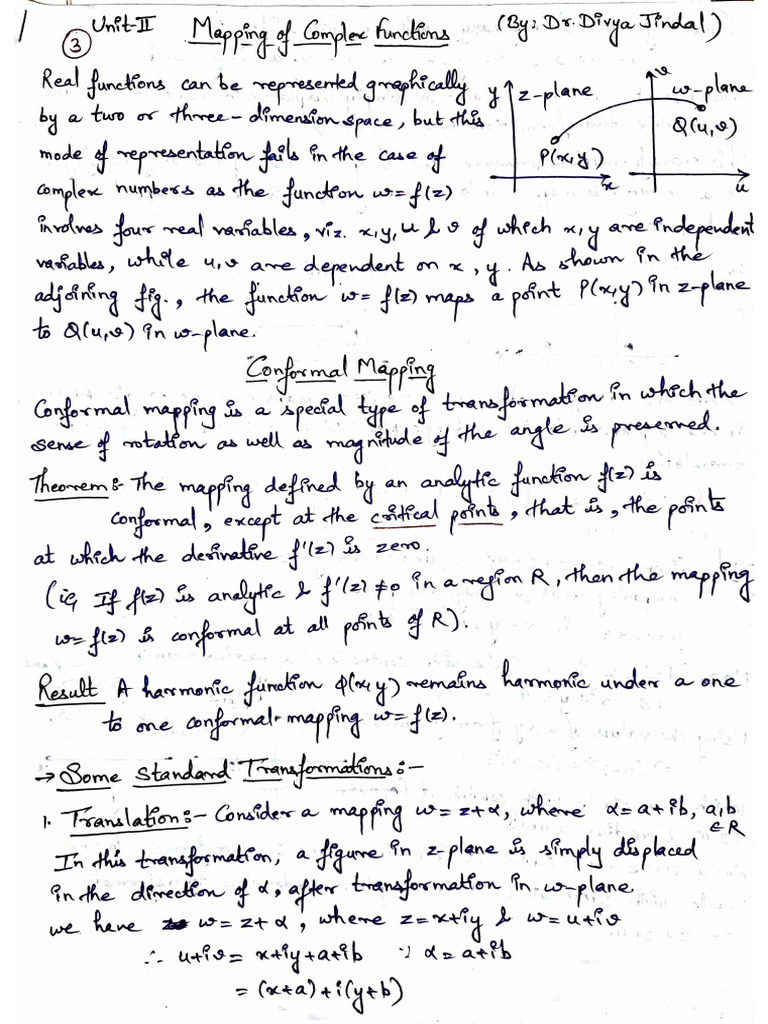 Unit-II Mapping of Complex Functions (By: Dr. Divya Jindal)
3
Real functions can be represented graphically
by a two or three-dimension space, but this
mode of representation fails in the case of
complex numbers as the function w=f(z)
y z-plane P(x,y) x
v w-plane Q(u,v) u
involves four real variables, viz. x,y,u & v of which x,y are independent
variables, while u,v are dependent on x,y. As shown in the
adjoining fig., the function w=f(z) maps a point P(x,y) in z-plane
to Q(u,v) in w-plane.
Conformal Mapping
Conformal mapping is a special type of transformation in which the
sense of rotation as well as magnitude of the angle is preserved.
Theorem:- The mapping defined by an analytic function f(z) is
conformal, except at the critical points, that is, the points
at which the derivative f'(z) is zero.
(ie, If f(z) is analytic & f'(z)≠0 in a region R, then the mapping
w=f(z) is conformal at all points of R).
Result A harmonic function φ(x,y) remains harmonic under a one
to one conformal-mapping w=f(z).
→ Some Standard Transformations:-
1. Translation:- Consider a mapping w=z+α, where α=a+ib, a,b
∈R
In this transformation, a figure in z-plane is simply displaced
in the direction of α, after transformation in w-plane
we have w=z+α, where z=x+iy & w=u+iv
∴ u+iv = x+iy+a+ib ∵ α=a+ib
= (x+a)+i(y+b)